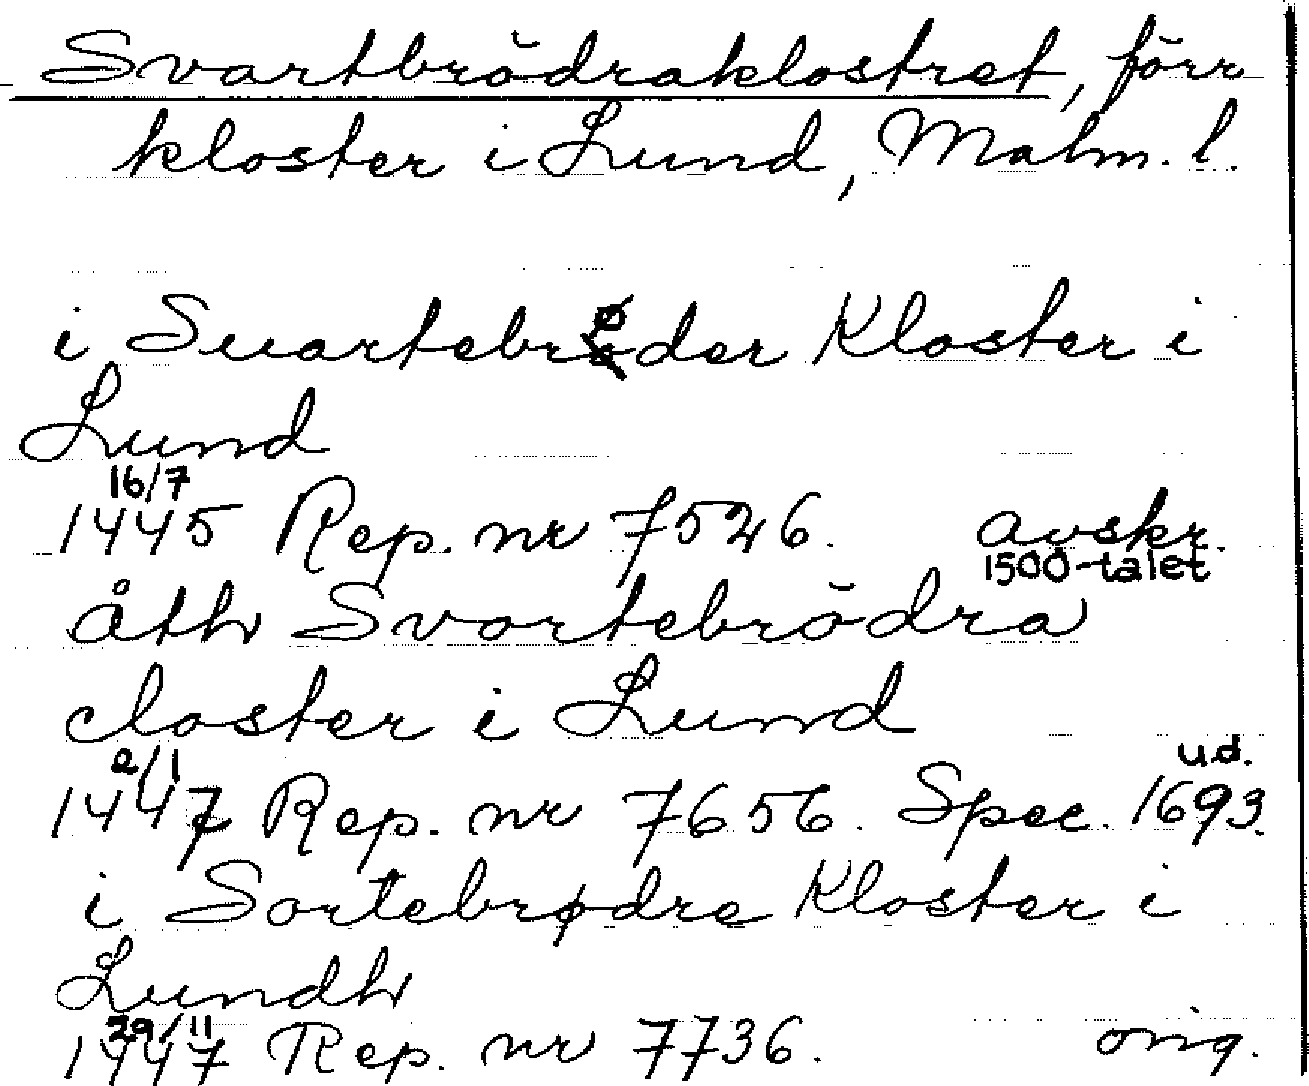 Svartbrödraklostret, förr
kloster i Lund, Malm. l.
i Suartebrøder Kloster i
Lund
16/7
1445 Rep. nr 7526. avskr.
1500-talet
åth Svortebrödra
closter i Lund
2/1 u.d.
1447 Rep. nr 7656. Spec. 1693.
i Sortebrødre Kloster i
Lundh
29/11
1447 Rep. nr 7736. orig.